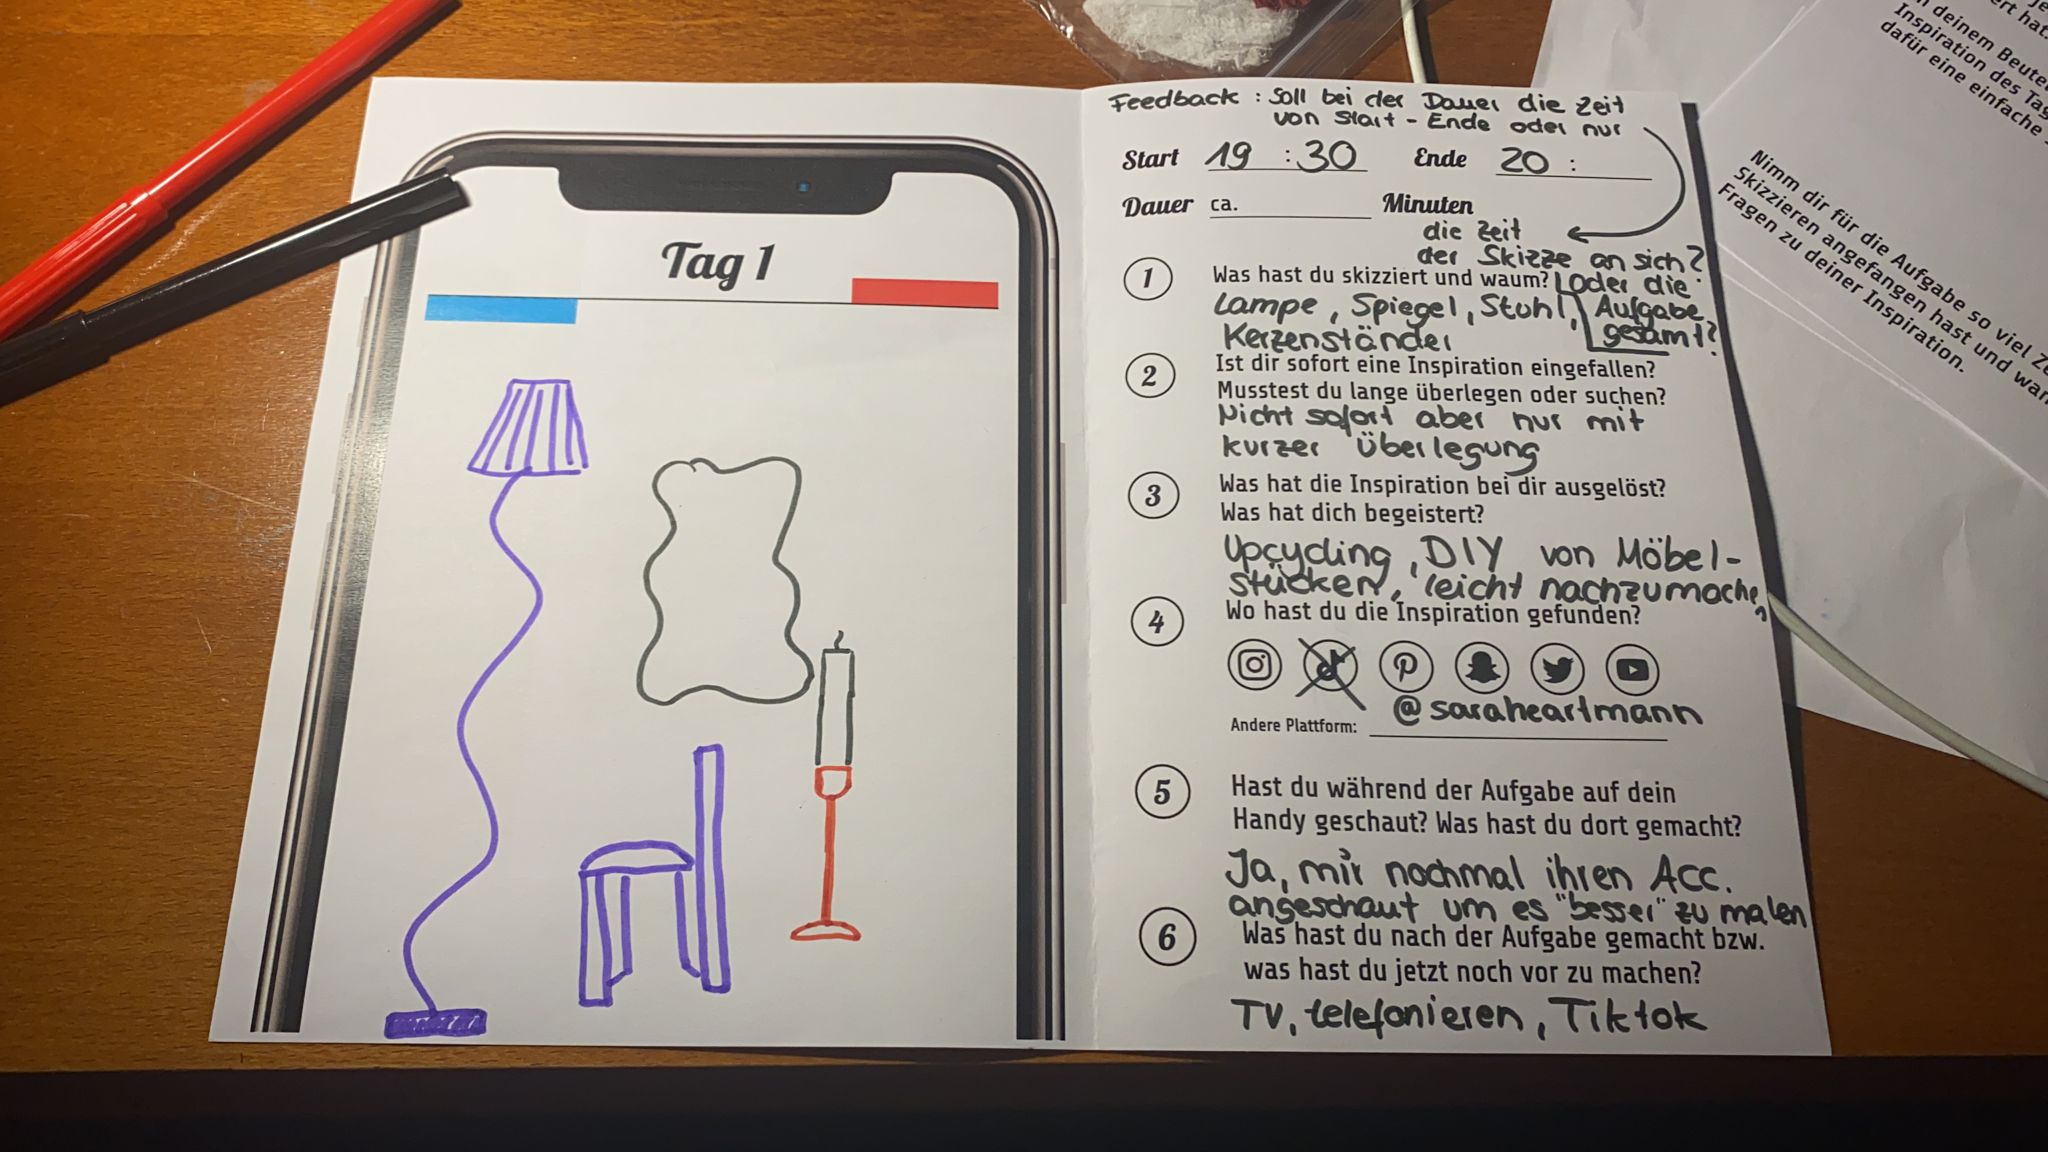 Tag 1
Feedback : Soll bei der Dauer die Zeit
von Start - Ende oder nur
die Zeit
der Skizze an sich?
oder die
Aufgabe
gesamt?
Start 19 : 30 Ende 20 :
Dauer ca. Minuten
1 Was hast du skizziert und waum?
Lampe, Spiegel, Stuhl,
Kerzenständer
2 Ist dir sofort eine Inspiration eingefallen?
Musstest du lange überlegen oder suchen?
Nicht sofort aber nur mit
kurzer Überlegung
3 Was hat die Inspiration bei dir ausgelöst?
Was hat dich begeistert?
Upcycling, DIY von Möbel-
stücken, leicht nachzumachen
4 Wo hast du die Inspiration gefunden?
@saraheartmann
Andere Plattform:
5 Hast du während der Aufgabe auf dein
Handy geschaut? Was hast du dort gemacht?
Ja, mir nochmal ihren Acc.
angeschaut um es "besser" zu malen
6 Was hast du nach der Aufgabe gemacht bzw.
was hast du jetzt noch vor zu machen?
TV, telefonieren, Tiktok
ert hat.
deinem Beute
Inspiration des Tag
dafür eine einfache
Nimm dir für die Aufgabe so viel
Skizzieren angefangen hast und
Fragen zu deiner Inspiration.